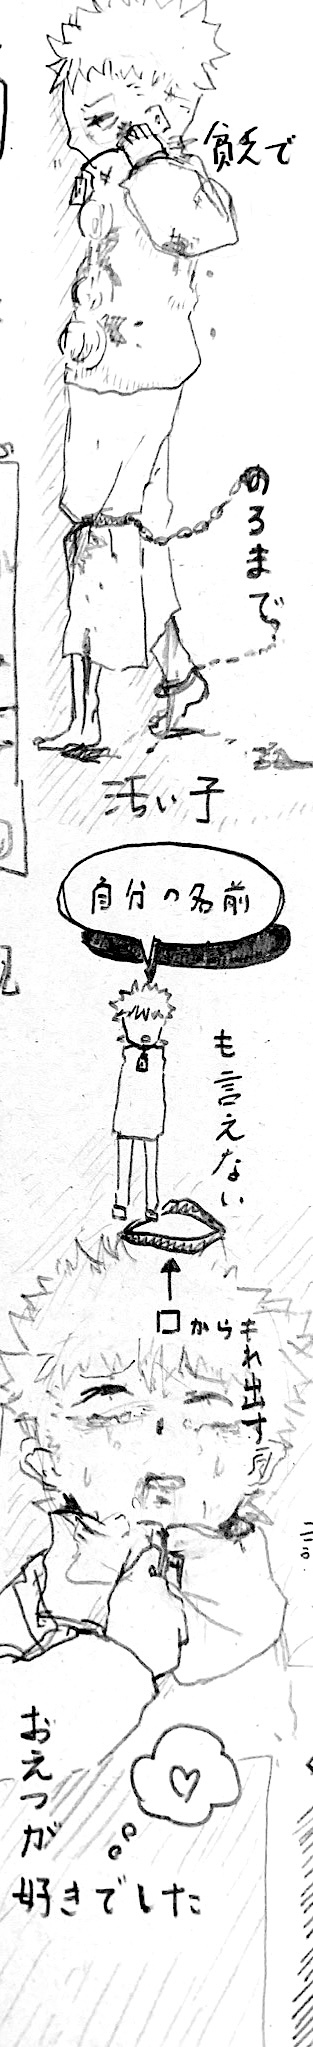 貧乏で
のろまで
汚い子
自分の名前
も言えない
口からもれ出す
おえつが
好きでした